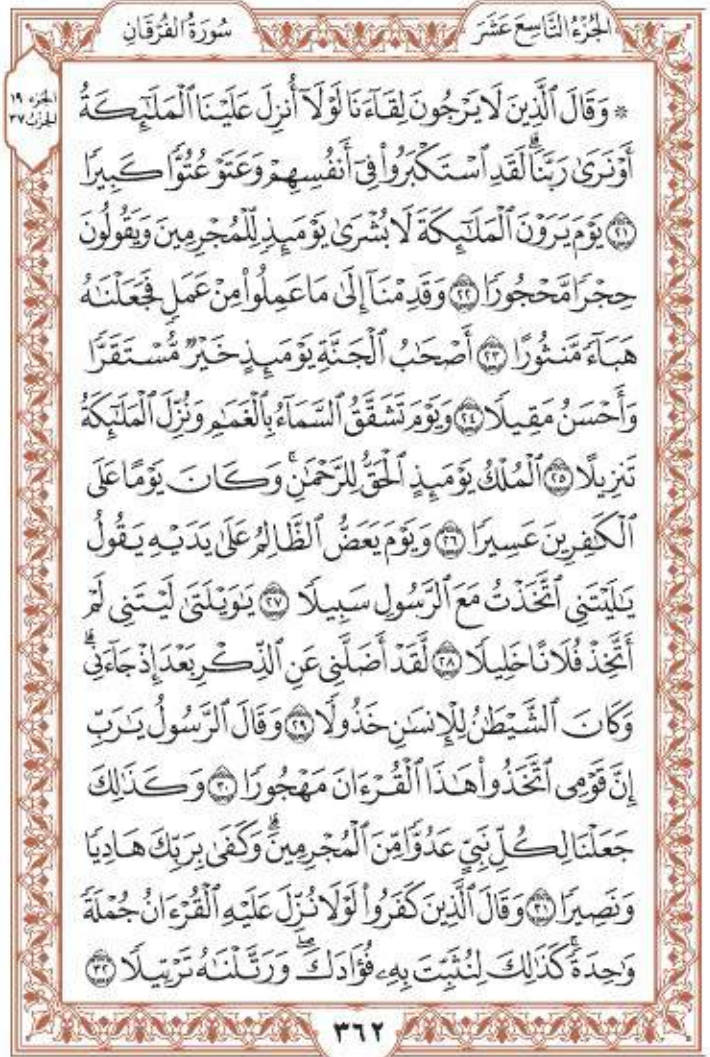 الجُزْءُ التَّاسِعَ عَشَرَ سُورَةُ الفُرْقَانِ
الجزء ١٩
الحزب ٣٧
۞ وَقَالَ ٱلَّذِينَ لَا يَرْجُونَ لِقَآءَنَا لَوْلَآ أُنزِلَ عَلَيْنَا ٱلْمَلَٰٓئِكَةُ
أَوْ نَرَىٰ رَبَّنَاۗ لَقَدِ ٱسْتَكْبَرُوا۟ فِىٓ أَنفُسِهِمْ وَعَتَوْ عُتُوًّا كَبِيرًا
٢١ يَوْمَ يَرَوْنَ ٱلْمَلَٰٓئِكَةَ لَا بُشْرَىٰ يَوْمَئِذٍ لِّلْمُجْرِمِينَ وَيَقُولُونَ
حِجْرًا مَّحْجُورًا ٢٢ وَقَدِمْنَآ إِلَىٰ مَا عَمِلُوا۟ مِنْ عَمَلٍ فَجَعَلْنَٰهُ
هَبَآءً مَّنثُورًا ٢٣ أَصْحَٰبُ ٱلْجَنَّةِ يَوْمَئِذٍ خَيْرٌ مُّسْتَقَرًّا
وَأَحْسَنُ مَقِيلًا ٢٤ وَيَوْمَ تَشَقَّقُ ٱلسَّمَآءُ بِٱلْغَمَٰمِ وَنُزِّلَ ٱلْمَلَٰٓئِكَةُ
تَنزِيلًا ٢٥ ٱلْمُلْكُ يَوْمَئِذٍ ٱلْحَقُّ لِلرَّحْمَٰنِۚ وَكَانَ يَوْمًا عَلَى
ٱلْكَٰفِرِينَ عَسِيرًا ٢٦ وَيَوْمَ يَعَضُّ ٱلظَّالِمُ عَلَىٰ يَدَيْهِ يَقُولُ
يَٰلَيْتَنِى ٱتَّخَذْتُ مَعَ ٱلرَّسُولِ سَبِيلًا ٢٧ يَٰوَيْلَتَىٰ لَيْتَنِى لَمْ
أَتَّخِذْ فُلَانًا خَلِيلًا ٢٨ لَّقَدْ أَضَلَّنِى عَنِ ٱلذِّكْرِ بَعْدَ إِذْ جَآءَنِىۗ
وَكَانَ ٱلشَّيْطَٰنُ لِلْإِنسَٰنِ خَذُولًا ٢٩ وَقَالَ ٱلرَّسُولُ يَٰرَبِّ
إِنَّ قَوْمِى ٱتَّخَذُوا۟ هَٰذَا ٱلْقُرْءَانَ مَهْجُورًا ٣٠ وَكَذَٰلِكَ
جَعَلْنَا لِكُلِّ نَبِىٍّ عَدُوًّا مِّنَ ٱلْمُجْرِمِينَۗ وَكَفَىٰ بِرَبِّكَ هَادِيًا
وَنَصِيرًا ٣١ وَقَالَ ٱلَّذِينَ كَفَرُوا۟ لَوْلَا نُزِّلَ عَلَيْهِ ٱلْقُرْءَانُ جُمْلَةً
وَٰحِدَةًۚ كَذَٰلِكَ لِنُثَبِّتَ بِهِۦ فُؤَادَكَۖ وَرَتَّلْنَٰهُ تَرْتِيلًا ٣٢
٣٦٢